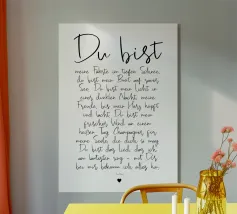 Du bist
meine Fährte im tiefen Schnee,
du bist mein Boot auf hoher
See. Du bist mein Licht in
einer dunklen Nacht, meine
Freude, bis mein Herz hüpft
und lacht. Du bist mein
frischer Wind an einem
heißen Tag, Champagner für
meine Seele, die dich so mag.
Du bist das Lied, das ich
am lautesten sing - mit Dir
bei mir bekomm ich alles hin.